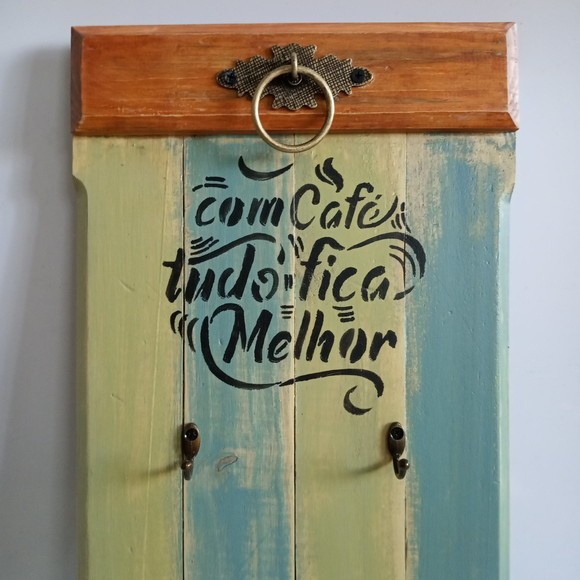 com Café
tudo fica
Melhor